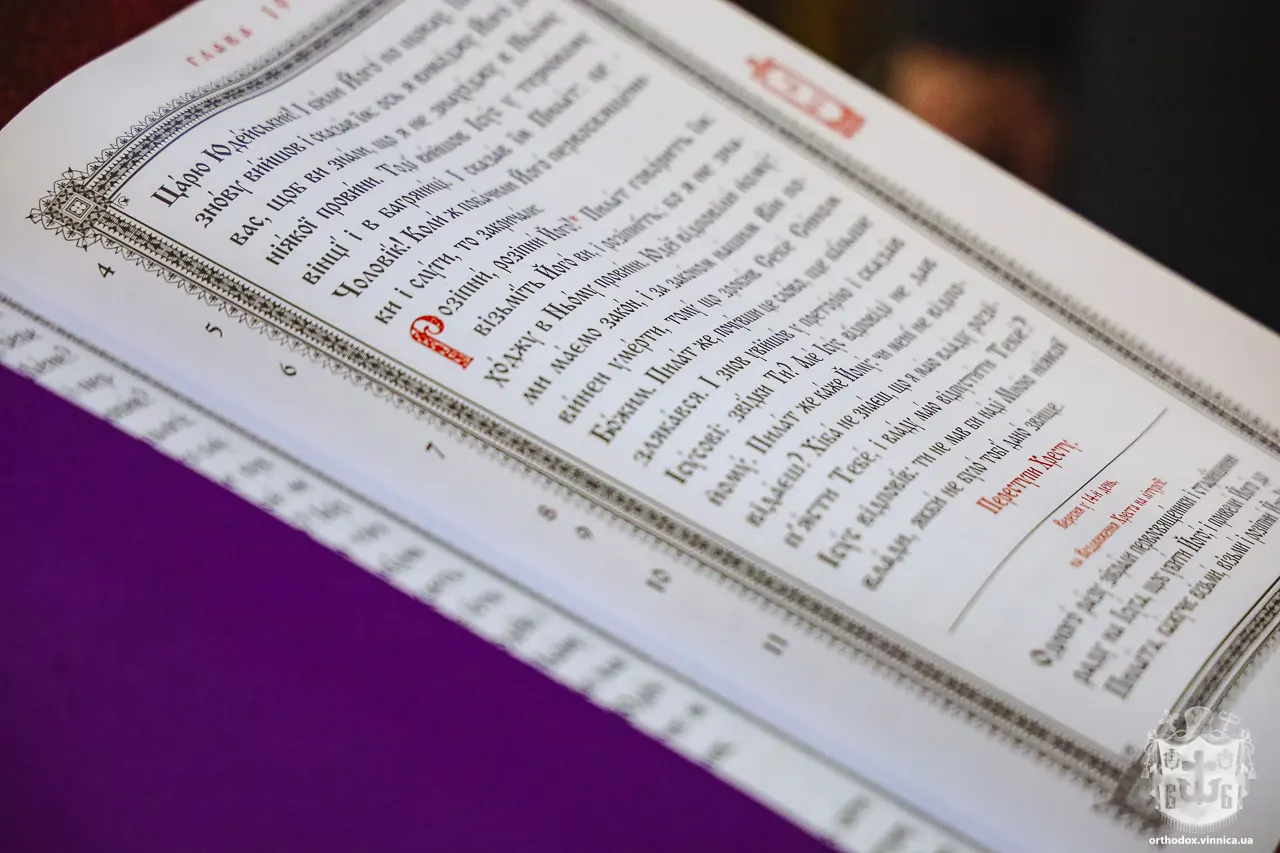 ГЛАВА 19
Царю Юдейський! І били Його по щоках.
знову вийшов і сказав їм: ось я виводжу Його до
вас, щоб ви знали, що я не знаходжу в Ньому
ніякої провини. Тоді вийшов Ісус у терновому
вінці і в багряниці. І сказав їм Пилат: це
Чоловік! Коли ж побачили Його первосвященики
ки і слуги, то закричали:
Розіпни, розіпни Його!* Пилат говорить їм:
візьміть Його ви, і розіпніть, бо я не зна-
ходжу в Ньому провини. Юдеї відповіли йому:
ми маємо закон, і за законом нашим Він по-
винен умерти, тому що зробив Себе Сином
Божим. Пилат же, почувши це слово, ще більше
злякався. І знов увійшов у преторію і сказав
Ісусові: звідки Ти? Але Ісус відповіді не дав
йому. Пилат же каже Йому: чи мені не відпо-
відаєш? Хіба не знаєш, що я маю владу розі-
п'ясти Тебе, і владу маю відпустити Тебе?
Ісус відповів: ти не мав би наді Мною ніякої
влади, якби не було тобі дано звіще.
Переступи Хресту.
Вересня у 14-й день,
на Воздвиження Хреста на літургії
Одного разу зібрали первосвященики і старійшини
раду на Ісуса, щоб убити Його; і привели Його до
Пилата, кажучи: візьми, візьми і розіпни Його
4
5
6
7
8
9
10
11
orthodox.vinnica.ua